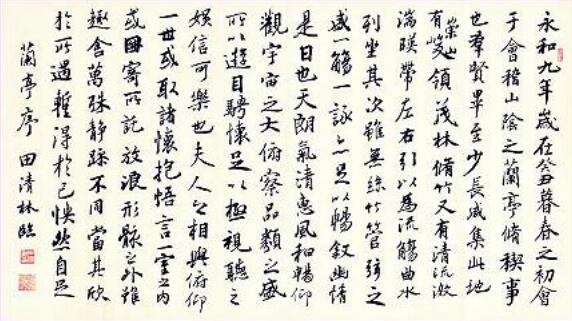 永和九年歲在癸丑暮春之初會
于會稽山陰之蘭亭脩稧事
也羣賢畢至少長咸集此地
有崇山峻領茂林脩竹又有清流激
湍暎帶左右引以為流觴曲水
列坐其次雖無絲竹管弦之
盛一觴一詠亦足以暢敘幽情
是日也天朗氣清惠風和暢仰
觀宇宙之大俯察品類之盛
所以遊目騁懷足以極視聽之
娛信可樂也夫人之相與俯仰
一世或取諸懷抱悟言一室之內
或因寄所託放浪形骸之外雖
趣舍萬殊静躁不同當其欣
於所遇暫得於己怏然自足
蘭亭序 田清林臨